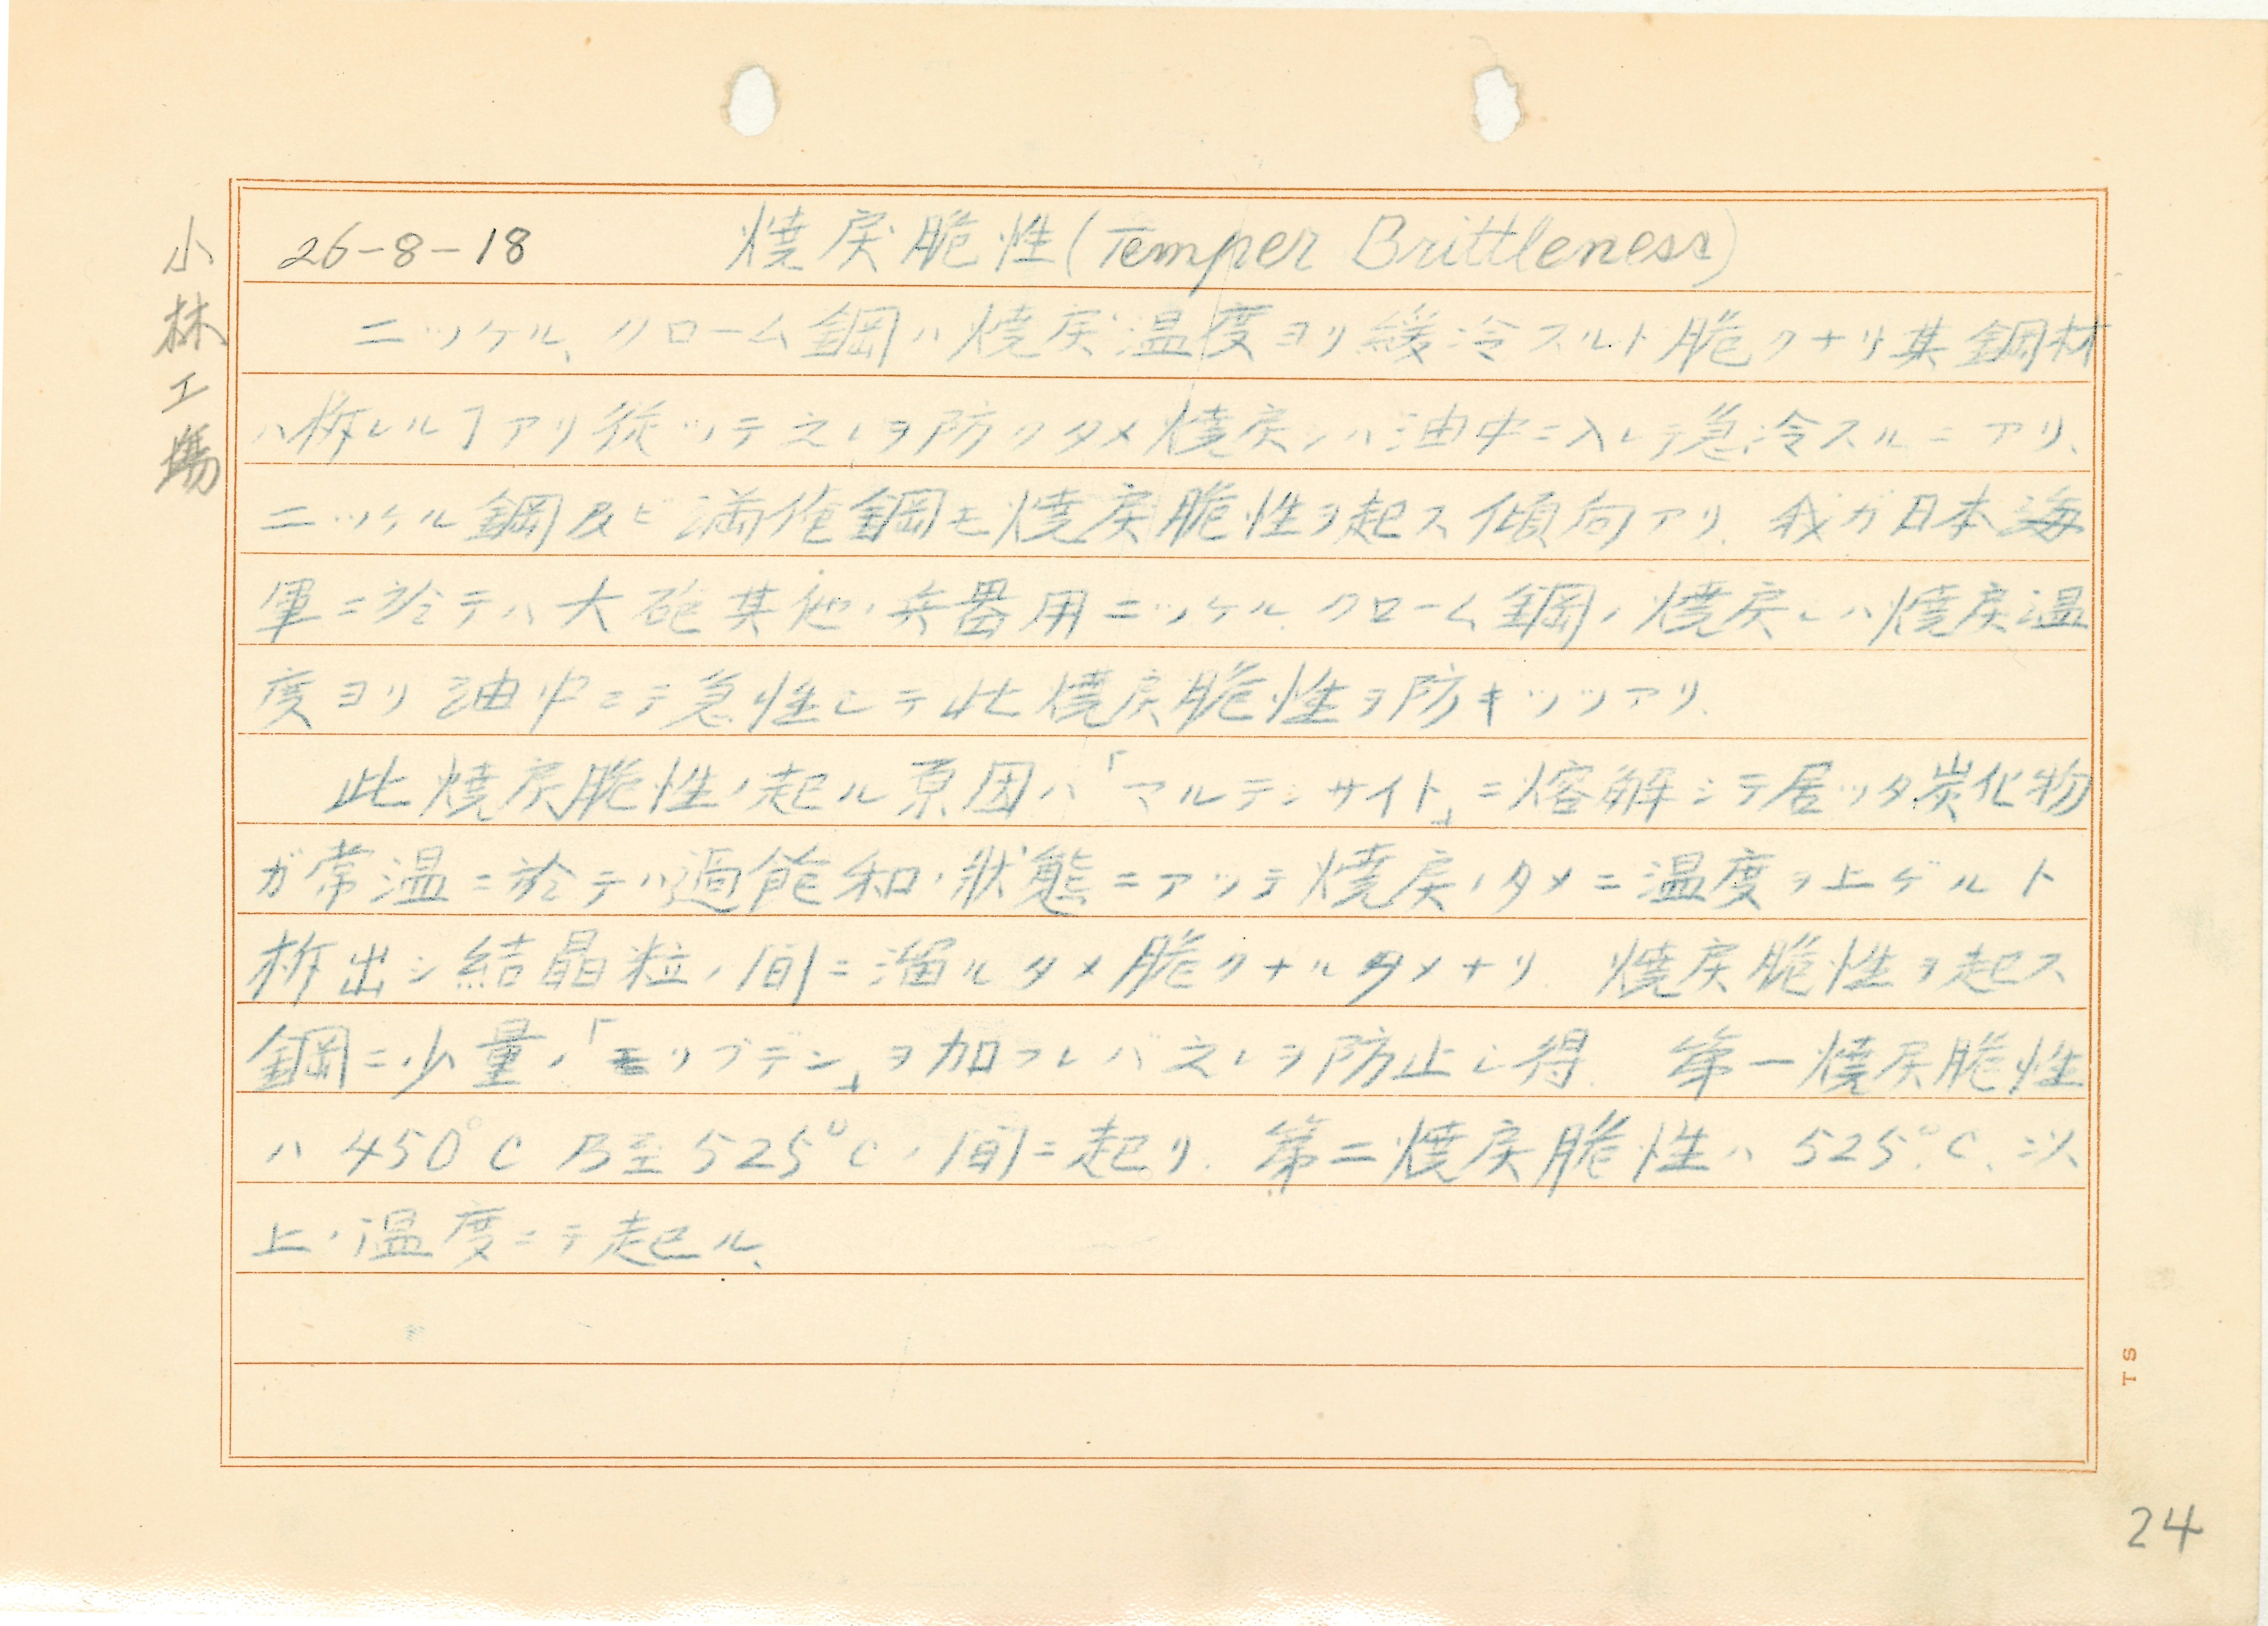 小林工場
26-8-18 焼戻脆性(Temper Brittleness)
ニッケル、クローム鋼ハ焼戻温度ヨリ緩冷スルト脆クナリ其鋼材
ハ柝レルヿアリ従ッテ之レヲ防クタメ焼戻シハ油中ニ入レテ急冷スルニアリ、
ニッケル鋼及ビ満俺鋼モ焼戻脆性ヲ起ス傾向アリ、我ガ日本海
軍ニ於テハ大砲其他ノ兵器用ニッケル、クローム鋼ノ焼戻シハ焼戻温
度ヨリ油中ニテ急性シテ此焼戻脆性ヲ防キツツアリ、
此焼戻脆性ノ起ル原因ハ「マルテンサイト」ニ熔解シテ居ッタ炭化物
ガ常温ニ於テハ過飽和ノ状態ニアッテ焼戻ノタメニ温度ヲ上ゲルト
柝出シ結晶粒ノ間ニ溜ルタメ脆クナルタメナリ、焼戻脆性ヲ起ス
鋼ニ少量ノ「モリブデン」ヲ加フレバ之レヲ防止シ得、第一焼戻脆性
ハ450°C乃至525°Cノ間ニ起リ、第二焼戻脆性ハ525°C、以
上ノ温度ニテ起ル、
TS
24